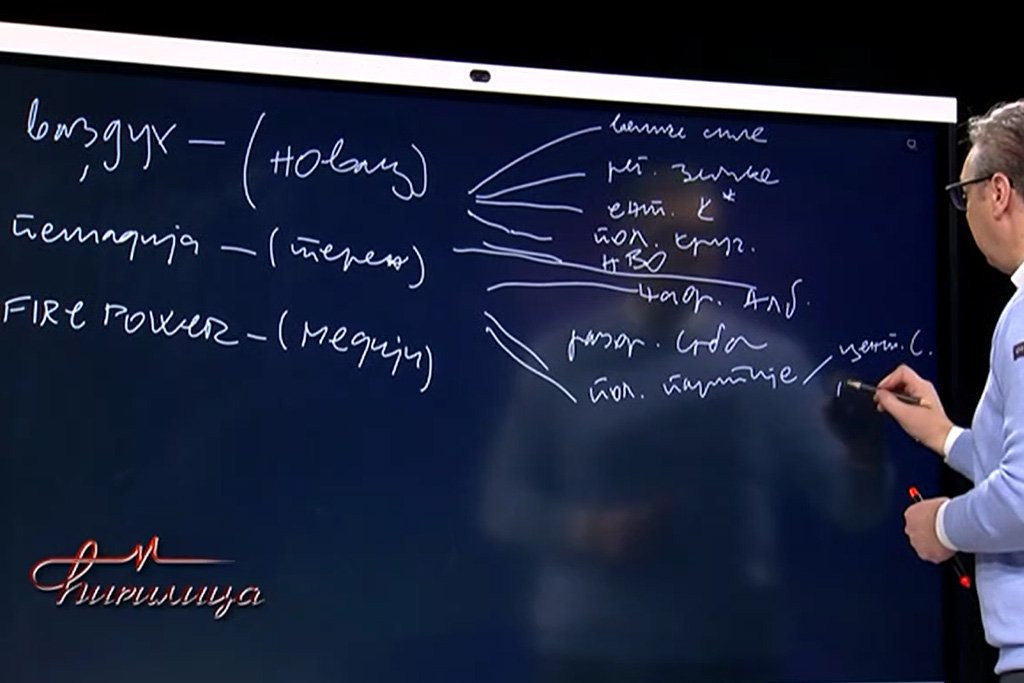 ваздух — (новац)
велике силе
рег. земље
ент. К *
пешадија — (терен)
пол. круг.
НВО
FIRE POWER — (медији)
разор. Срба
пол. партије
цент. С.
Ћирилица